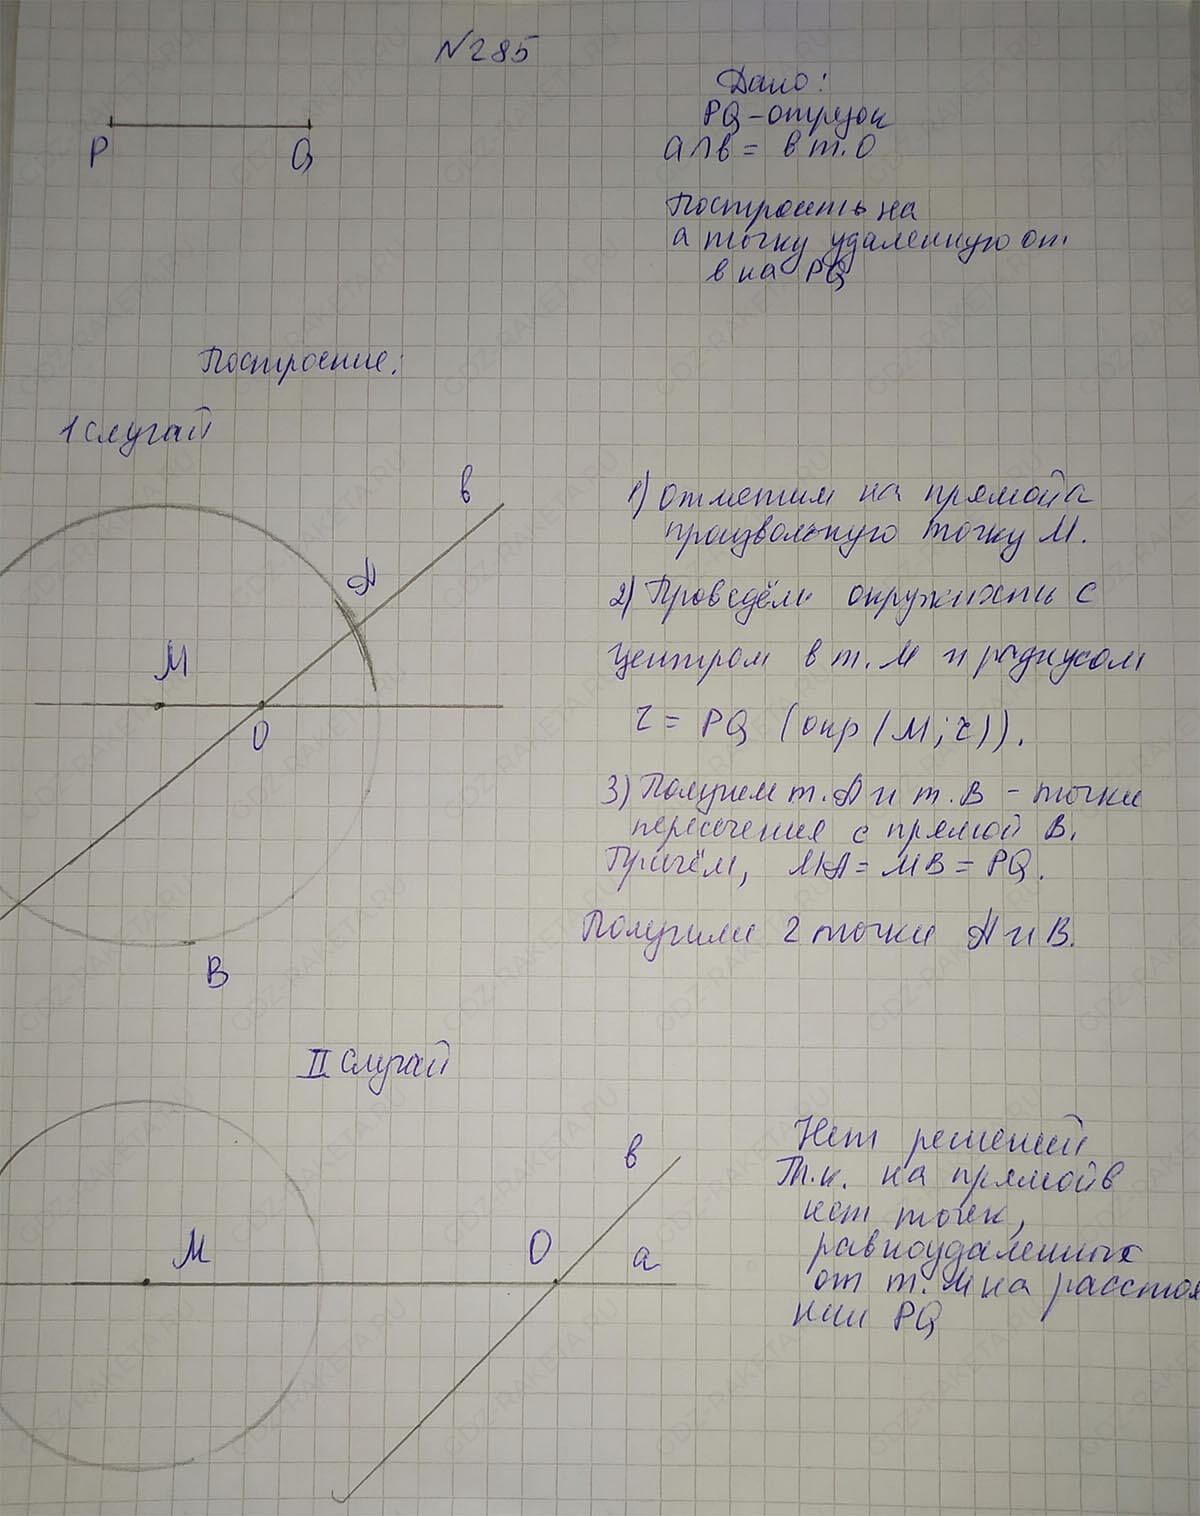 №285
P
Q
Дано:
PQ-отрезок
a∩b = в т. О
Построить на
а точку удаленную от
в на PQ
Построение:
1 случай
в
А
М
О
В
1) Отметим на прямой а
произвольную точку М.
2) Проведём окружность с
центром в т. М и радиусом
r = PQ (окр (М; r)).
3) Получим т. А и т. В - точки
пересечения с прямой В.
Причём, МА = МВ = PQ.
Получили 2 точки А и В.
II случай
М
О
в
а
Нет решений
Т.к. на прямой в
нет точек,
равноудаленных
от т. М на расстоя
нии PQ
GDZ-RAKETA.RU